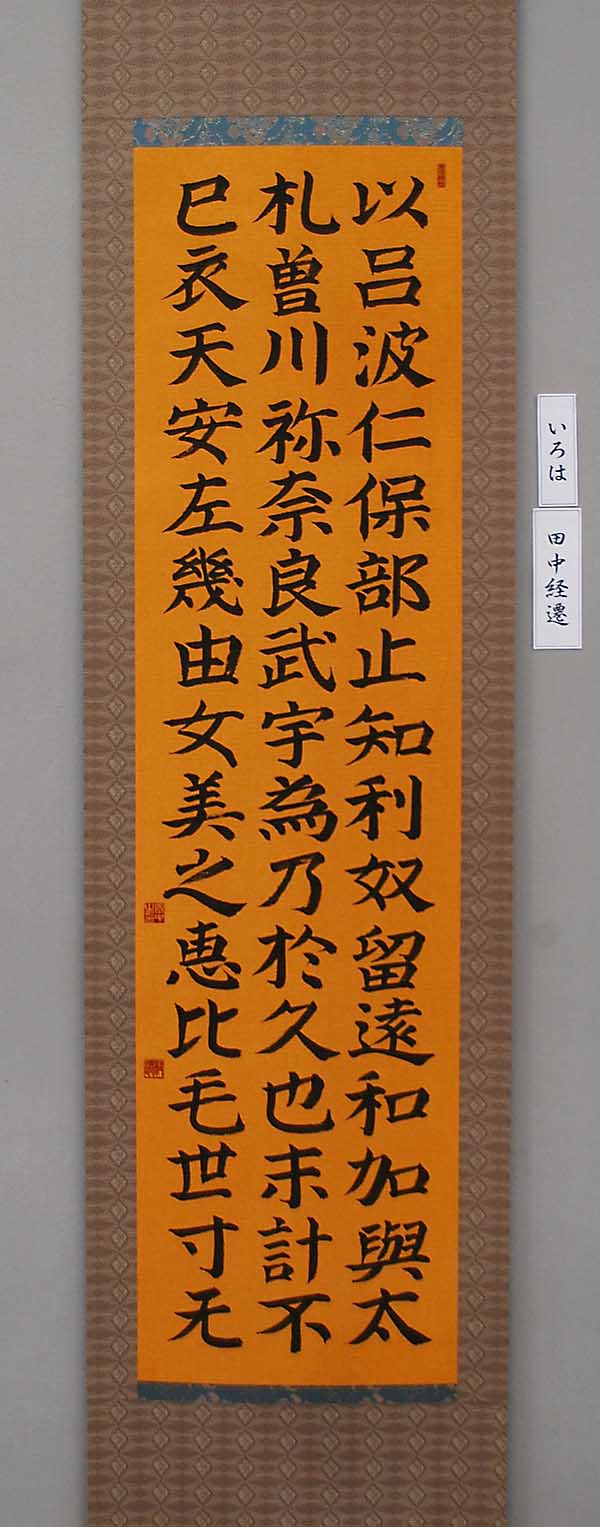 以呂波仁保部止知利奴留遠和加與太
札曽川祢奈良武宇為乃於久也末計不
巳衣天安左幾由女美之恵比毛世寸无
いろは
田中経遷